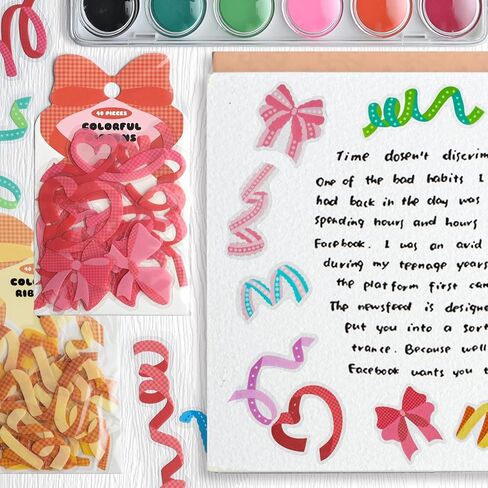 40 PIECES
COLORFUL
40
COL
RIB
Time dosen't discrim
One of the bad habits I
had back in the day was
spending hours and hours
Facebook. I was an avid
during my teenage years
the platform first cam
The newsfeed is designe
put you into a sort
trance. Because well
Facebook wants you t